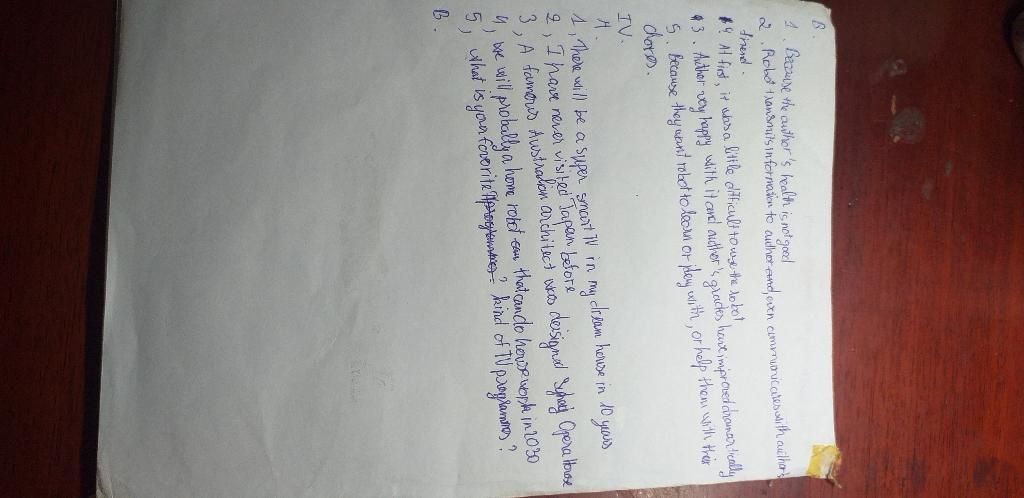 B.
1. Because the author's health is not good
2. Robot transmits information to author and even communicates with author's
friend.
4. At first, it was a little difficult to use the robot
3. Author very happy with it and author's grades have improved dramatically
5. Because they want robot to learn or play with, or help them with their
chores.
IV.
A.
1, There will be a super smart TV in my dream house in 10 years
2, I have never visited Japan before
3, A famous Australian architect was designd Opera House
4, we will probably a home robot that can do housework in 2030
5, what is your favorite kind of TV programmes?
B.